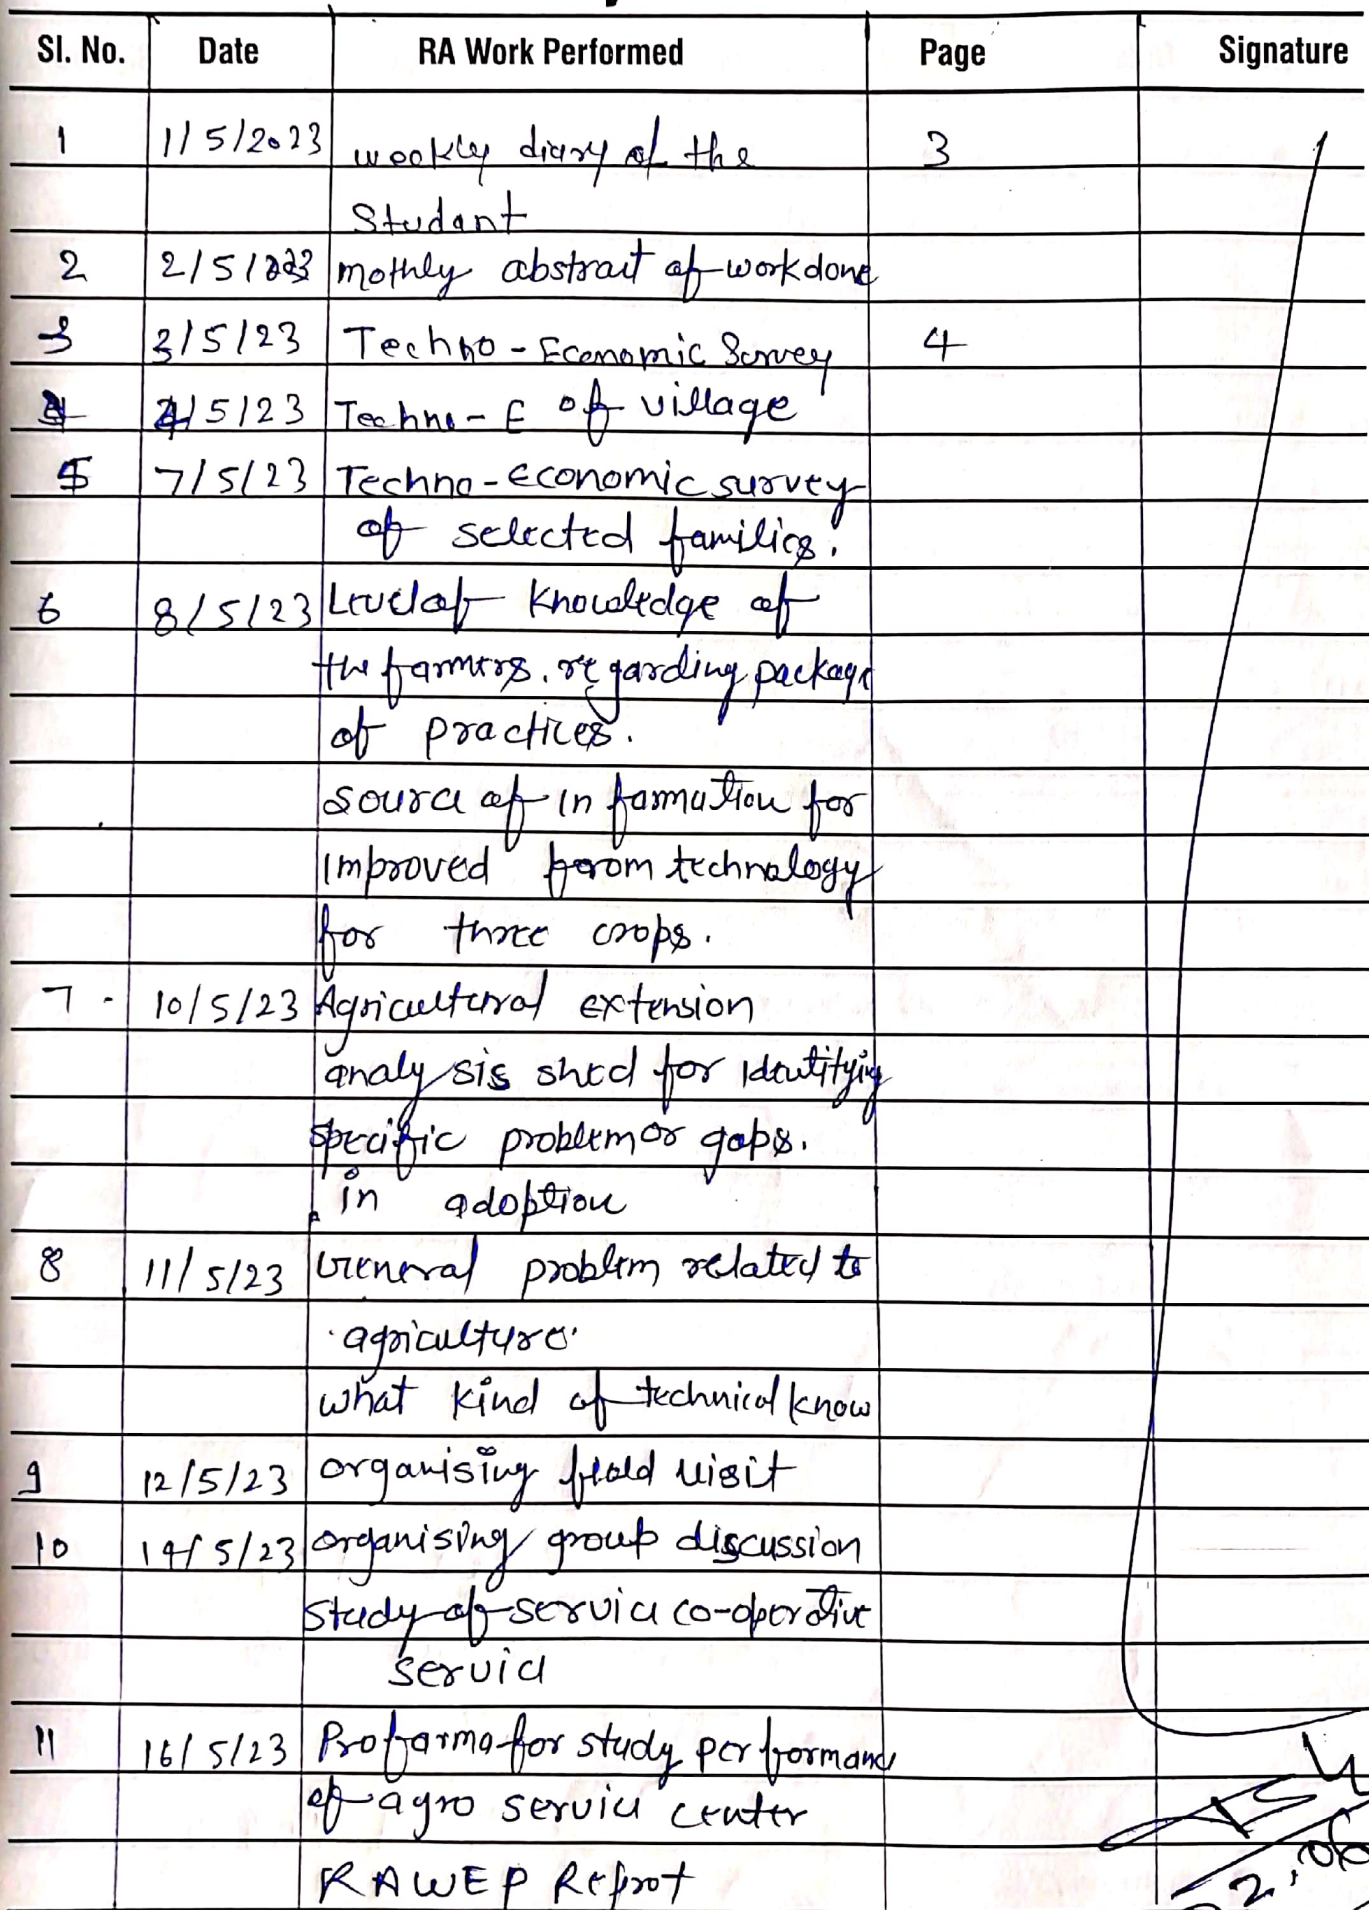 Sl. No. Date RA Work Performed Page Signature
1 1/5/2023 weekly diary of the 3
Student
2 2/5/2023 mothly abstrait of work done
3 3/5/23 Techno - Economic Survey 4
4 4/5/23 Techno - E of village
5 7/5/23 Techno - Economic survey
of selected families.
6 8/5/23 Level of knowledge of
the farmers. regarding package
of practices.
Source of information for
improved farom technology
for three crops.
7 - 10/5/23 Agricultural extension
analysis shed for Identifying
specific problem or gaps.
in adoption
8 11/5/23 General problem related to
agriculture
what kind of technical know
9 12/5/23 organising field visit
10 14/5/23 organising group discussion
study of service co-operative
service
11 16/5/23 Profarma for study performance
of agro service center
RAWEP Reprot